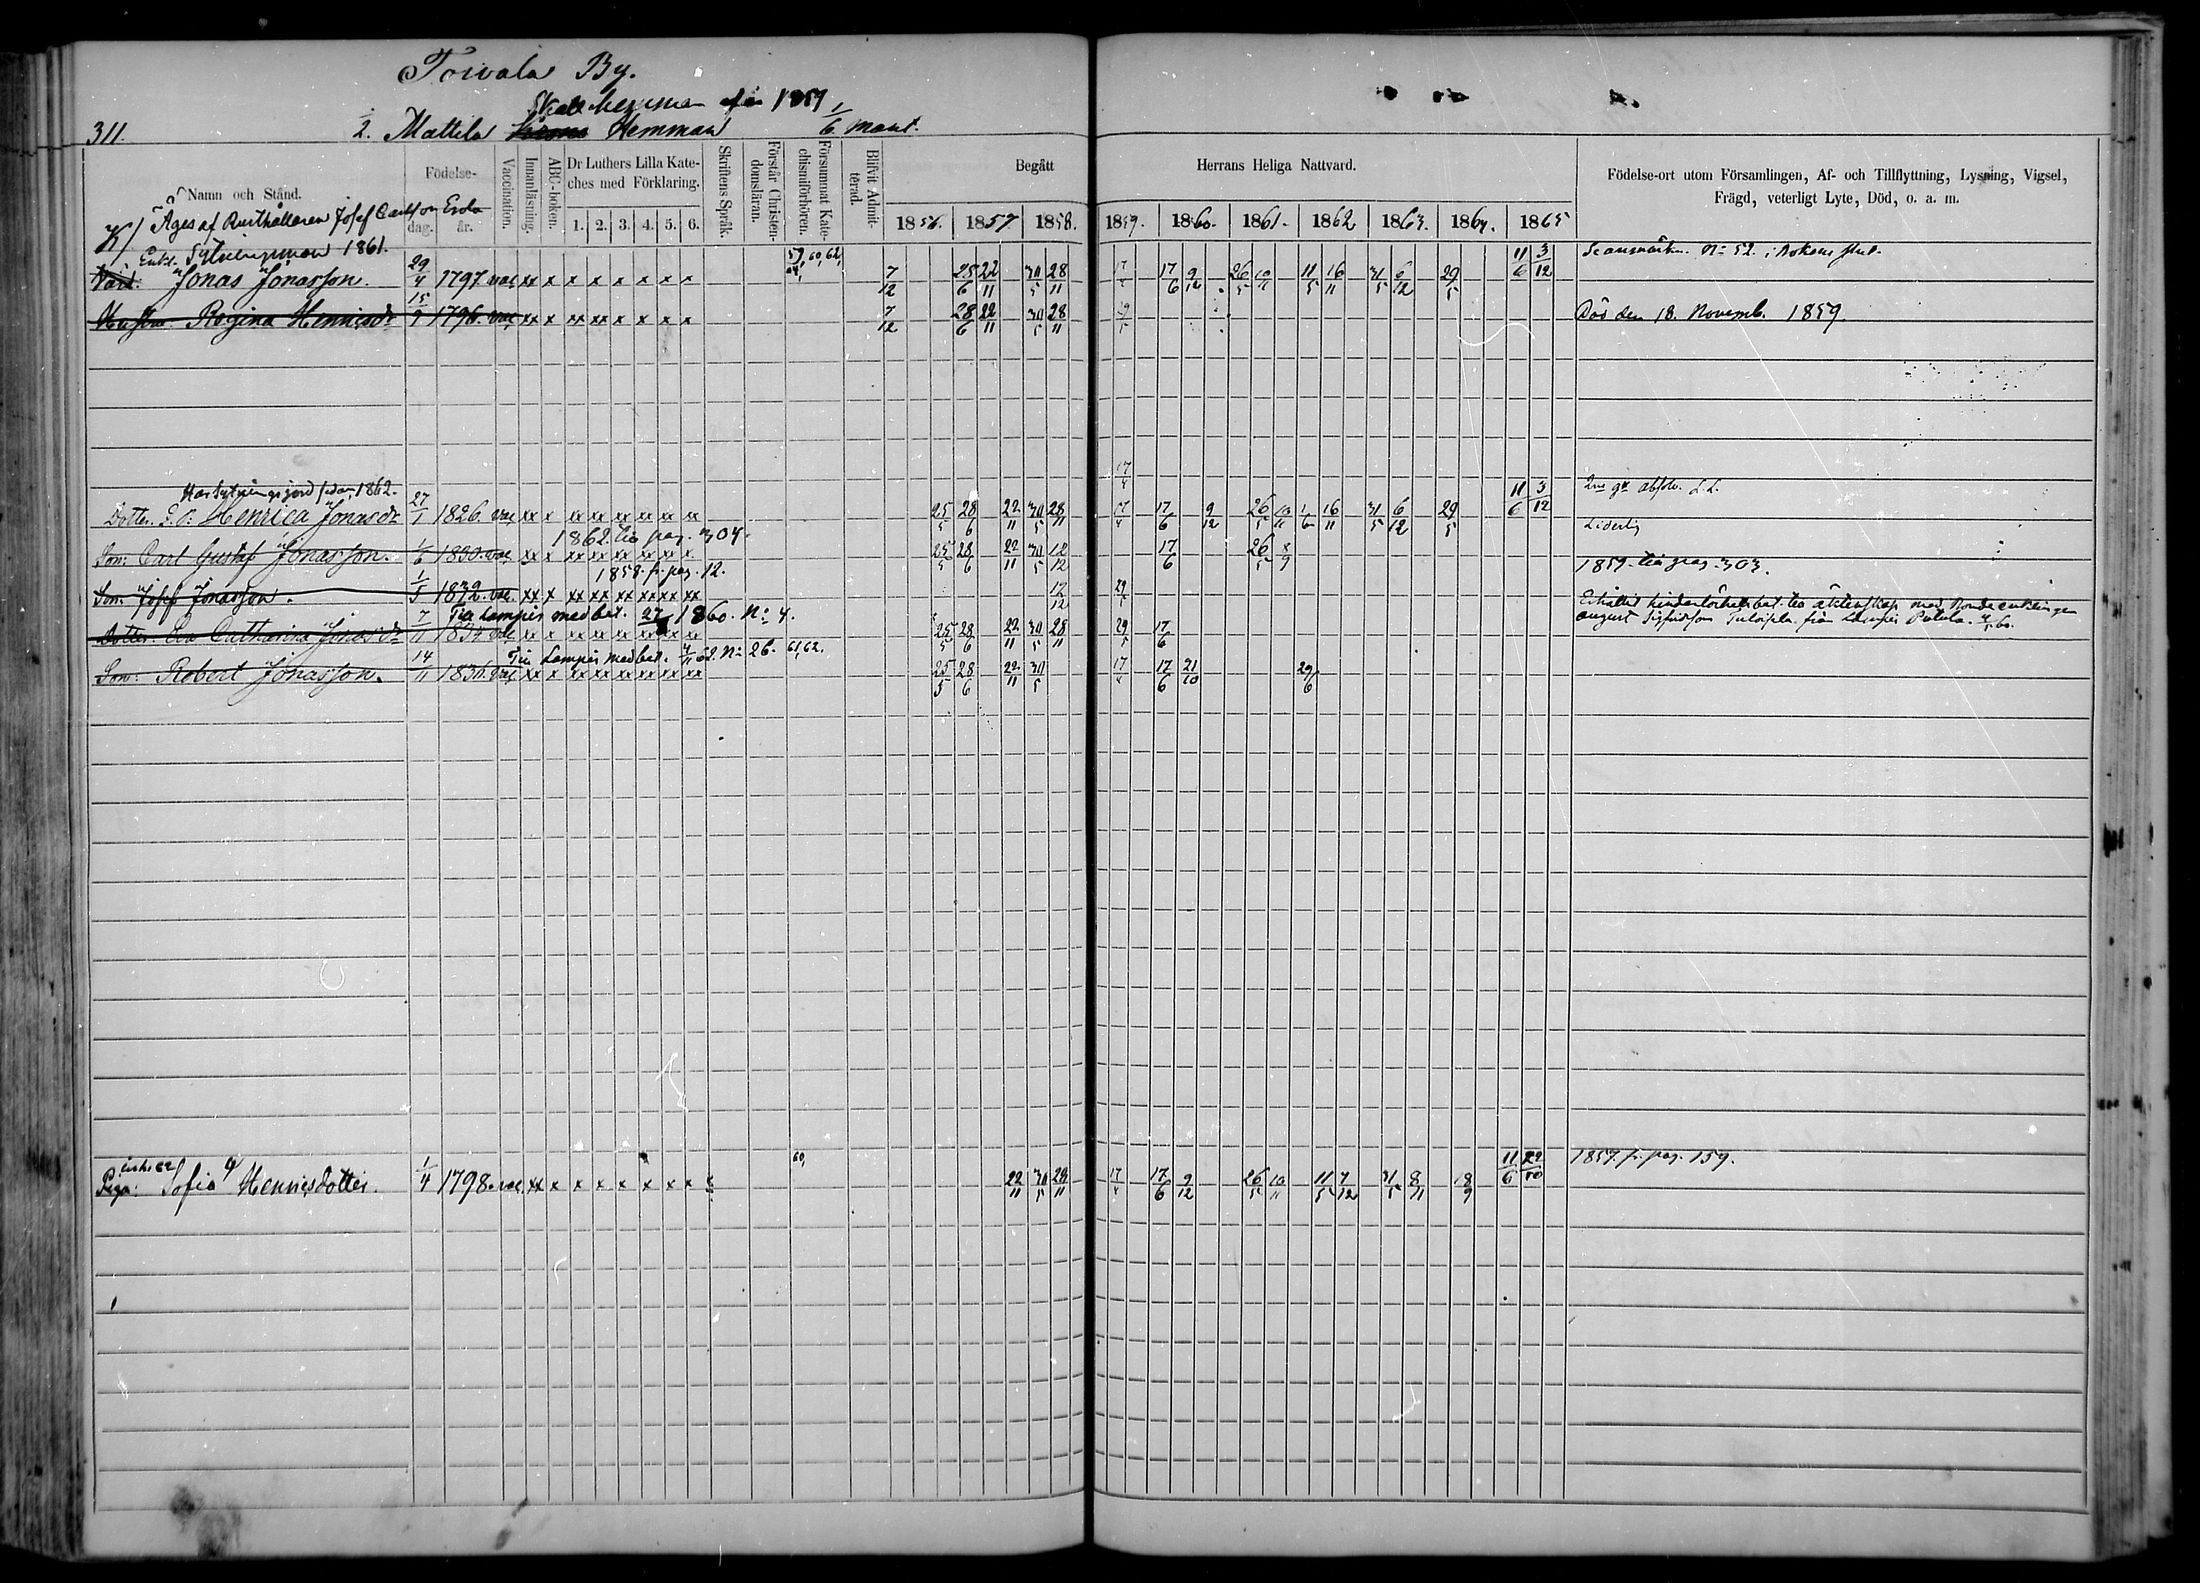 Toivala By.
Skatte hemman från 1859
311. 2. Mattila Hemman 1/6 mant.
Namn och Stånd.
Födelse-
dag. år.
Vaccination.
Innanläsning.
ABC-boken.
Dr Luthers Lilla Kate-
ches med Förklaring.
1. 2. 3. 4. 5. 6.
Skriftens Språk.
Förstår Christen-
domsläran.
Försummat Kate-
chismiförhören.
Blifvit Admit-
terad.
Begått Herrans Heliga Nattvard.
1856. 1857. 1858. 1859. 1860. 1861. 1862. 1863. 1864. 1865
Födelse-ort utom Församlingen, Af- och Tillflyttning, Lysning, Vigsel,
Frägd, veterligt Lyte, Död, o. a. m.
K/ Äges af Rusthållaren Josef Carlsson Erola
Enkl. Sytningsman 1861.
Jonas Jonasson. 29/4 1797. vac xx x x x x x x x 59, 60, 62, 64, 7/12 28/6 22/11 30/5 28/11 17/4 17/6 9/12 26/5 10/11 11/5 16/11 31/5 6/12 29/5 11/6 3/12 N:o 52. i bokens slut.
Hustru. Regina Henricsdr 15/9 1796. vac xx x xx xx x x x x 7/12 28/6 22/11 30/5 28/11 29/5 Död den 18. Novemb. 1859.
Har sytningsjord sedan 1862.
Dotter. Henrica Jonasdr 27/1 1826. vac xx x xx xx xx xx xx xx 25/5 28/6 22/11 30/5 28/11 17/4 17/6 9/12 26/5 10/11 1/6 16/11 31/5 6/12 29/5 11/6 3/12 Liderlig
1862 till pag. 304.
Son: Carl Gustaf Jonasson. 1/6 1830. vac xx x xx xx xx xx xx x 25/5 28/6 22/11 30/5 12/12 17/6 26/5 8/9
1858. fr. pag. 12.
Son. Josef Jonasson. 1/5 1832. vac xx x xx xx xx xx xx xx 12/12 29/5 1859. till pag. 303.
Till Lampis med bet. 27/8 1860. N:o 4.
Dotter. Eva Catharina Jonasdr 7/11 1834. vac xx x xx xx xx xx xx xx 25/5 28/6 22/11 30/5 28/11 29/5 17/6 Erhållit hinderlöshets bet. till äktenskap med Bonde enklingen
August Sigfridsson från Lampis 4/5 60.
Till Lampis med bet. 4/11 62. N:o 26. 61, 62.
Son: Robert Jonasson. 14/11 1836. vac xx x xx xx xx xx xx xx 25/5 28/6 22/11 30/5 17/4 17/6 21/10 29/6
Piga: Sofia Henricsdotter. 1/4 1798. vac xx x x x x x x x 60, 22/11 30/5 28/11 17/4 17/6 9/12 26/5 10/11 11/5 7/12 31/5 8/11 18/9 11/6 29/10 1857. fr. pag. 159.